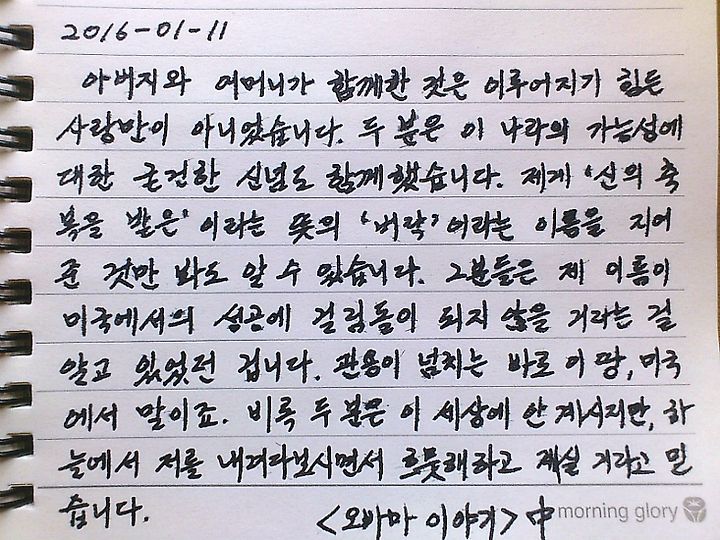 2016-01-11
아버지와 어머니가 함께한 것은 이루어지기 힘든
사랑만이 아니었습니다. 두 분은 이 나라의 가능성에
대한 굳건한 신념도 함께했습니다. 제게 '신의 축
복을 받은' 이라는 뜻의 '버락' 이라는 이름을 지어
준 것만 봐도 알 수 있습니다. 그분들은 제 이름이
미국에서의 성공에 걸림돌이 되지 않을 거라는 걸
알고 있었던 겁니다. 관용이 넘치는 바로 이 땅, 미국
에서 말이죠. 비록 두 분은 이 세상에 안 계시지만, 하
늘에서 저를 내려다보시면서 흐뭇해하고 계실 거라고 믿
습니다.
<오바마 이야기> 中 morning glory